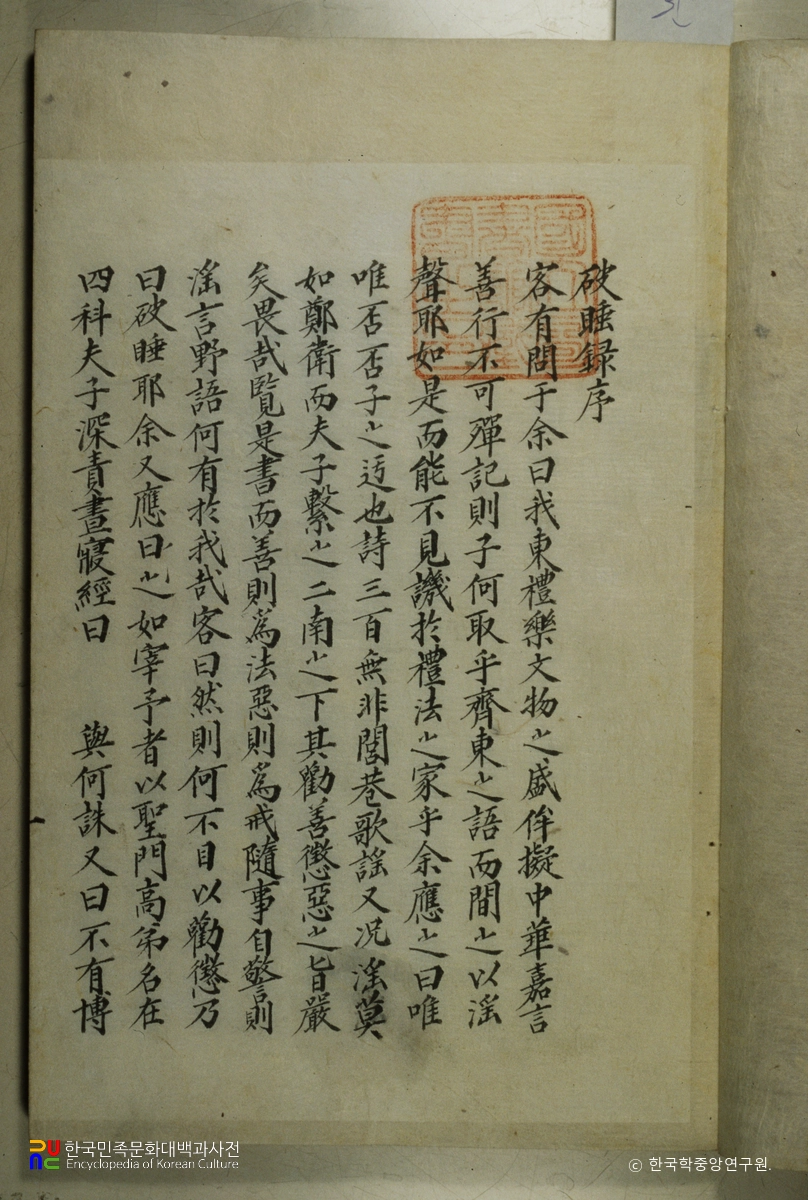 破睡録序
客有問于余曰我東禮樂文物之盛侔擬中華嘉言
善行不可殫記則子何取乎齊東之語而間之以滛
聲耶如是而能不見譏於禮法之家乎余應之曰唯
唯否否子之迃也詩三百無非閭巷歌謡又况滛莫
如鄭衛而夫子繫之二南之下其勸善懲惡之旨嚴
矣畏哉覧是書而善則爲法惡則爲戒隨事自警則
滛言野語何有於我哉客曰然則何不目以勸懲乃
曰破睡耶余又應曰之如宰予者以聖門高弟名在
四科夫子深責晝寢經曰 與何誅又曰不有博
한국민족문화대백과사전
Encyclopedia of Korean Culture
© 한국학중앙연구원.